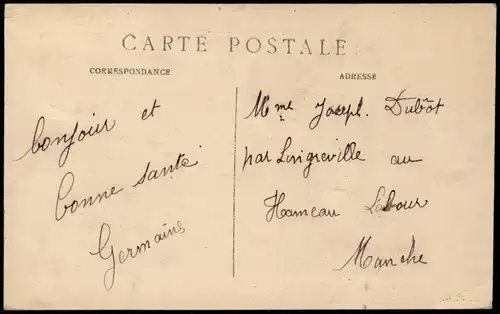 CARTE POSTALE
CORRESPONDANCE
ADRESSE
bonjour et
bonne santé
Germaine
Mme Joseph. Dubôt
par Lingreville au
Hameau
Manche